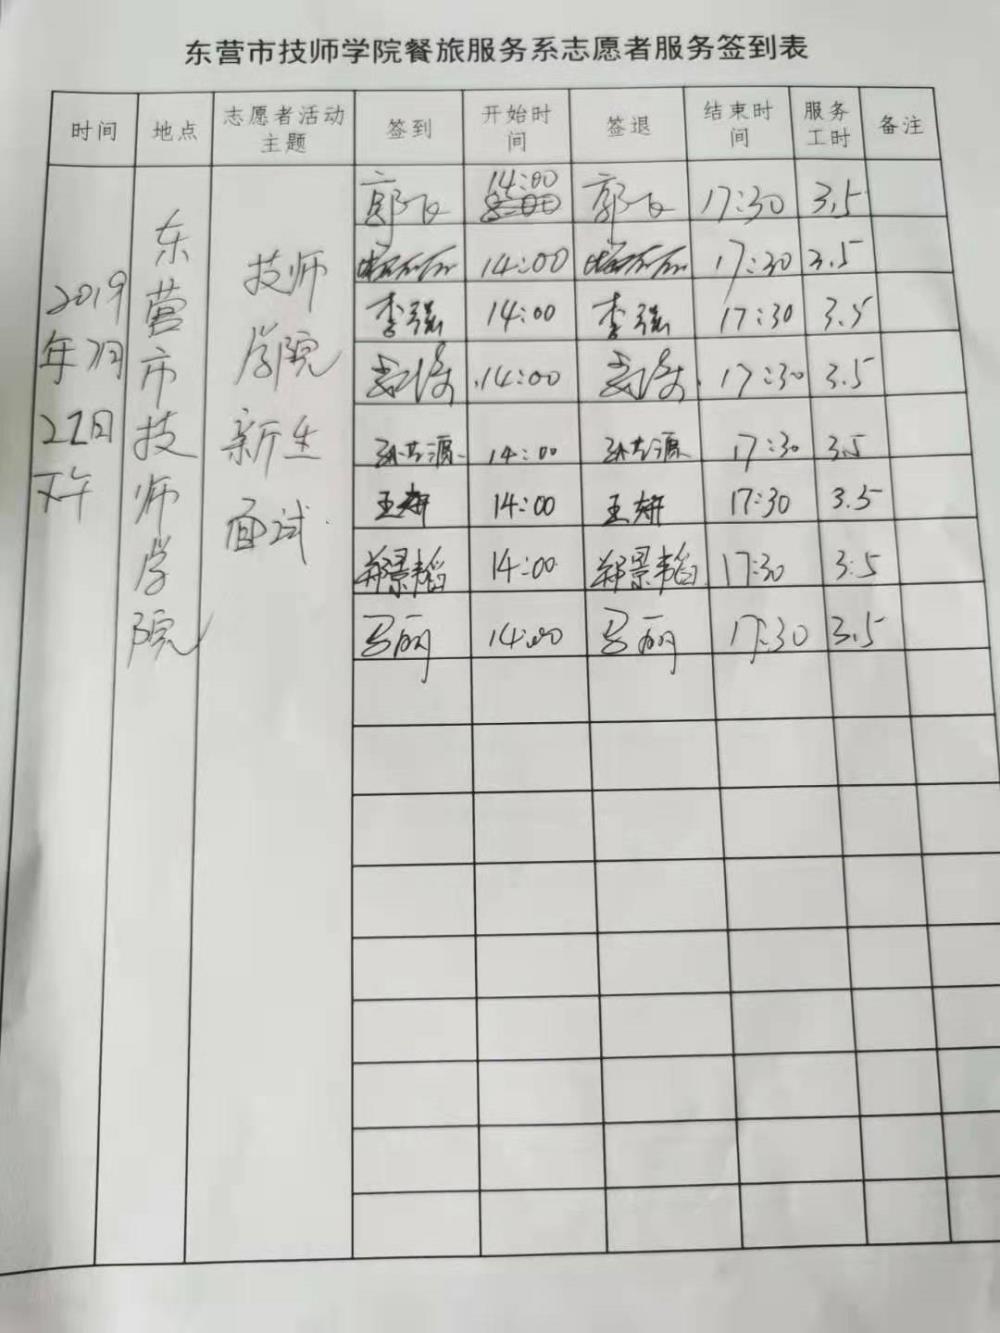 东营市技师学院餐旅服务系志愿者服务签到表
时间 地点 志愿者活动主题 签到 开始时间 签退 结束时间 服务工时 备注
2019年7月22日下午
东营市技师学院
技师学院新生面试
14:00 17:30 3.5
14:00 17:30 3.5
李强 14:00 李强 17:30 3.5
14:00 17:30 3.5
14:00 17:30 3.5
王妍 14:00 王妍 17:30 3.5
郑景韬 14:00 郑景韬 17:30 3.5
马丽 14:00 马丽 17:30 3.5